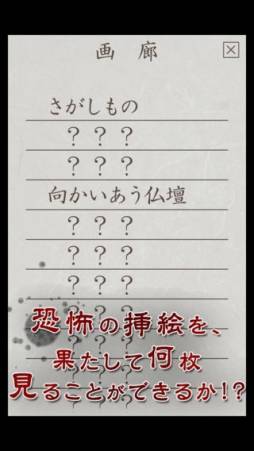 画廊
さがしもの
？？？
？？？
向かいあう仏壇
？？？
？？？
？？？
？？？
恐怖の挿絵を、
？？？
果たして何枚
見ることができるか!?
？？？